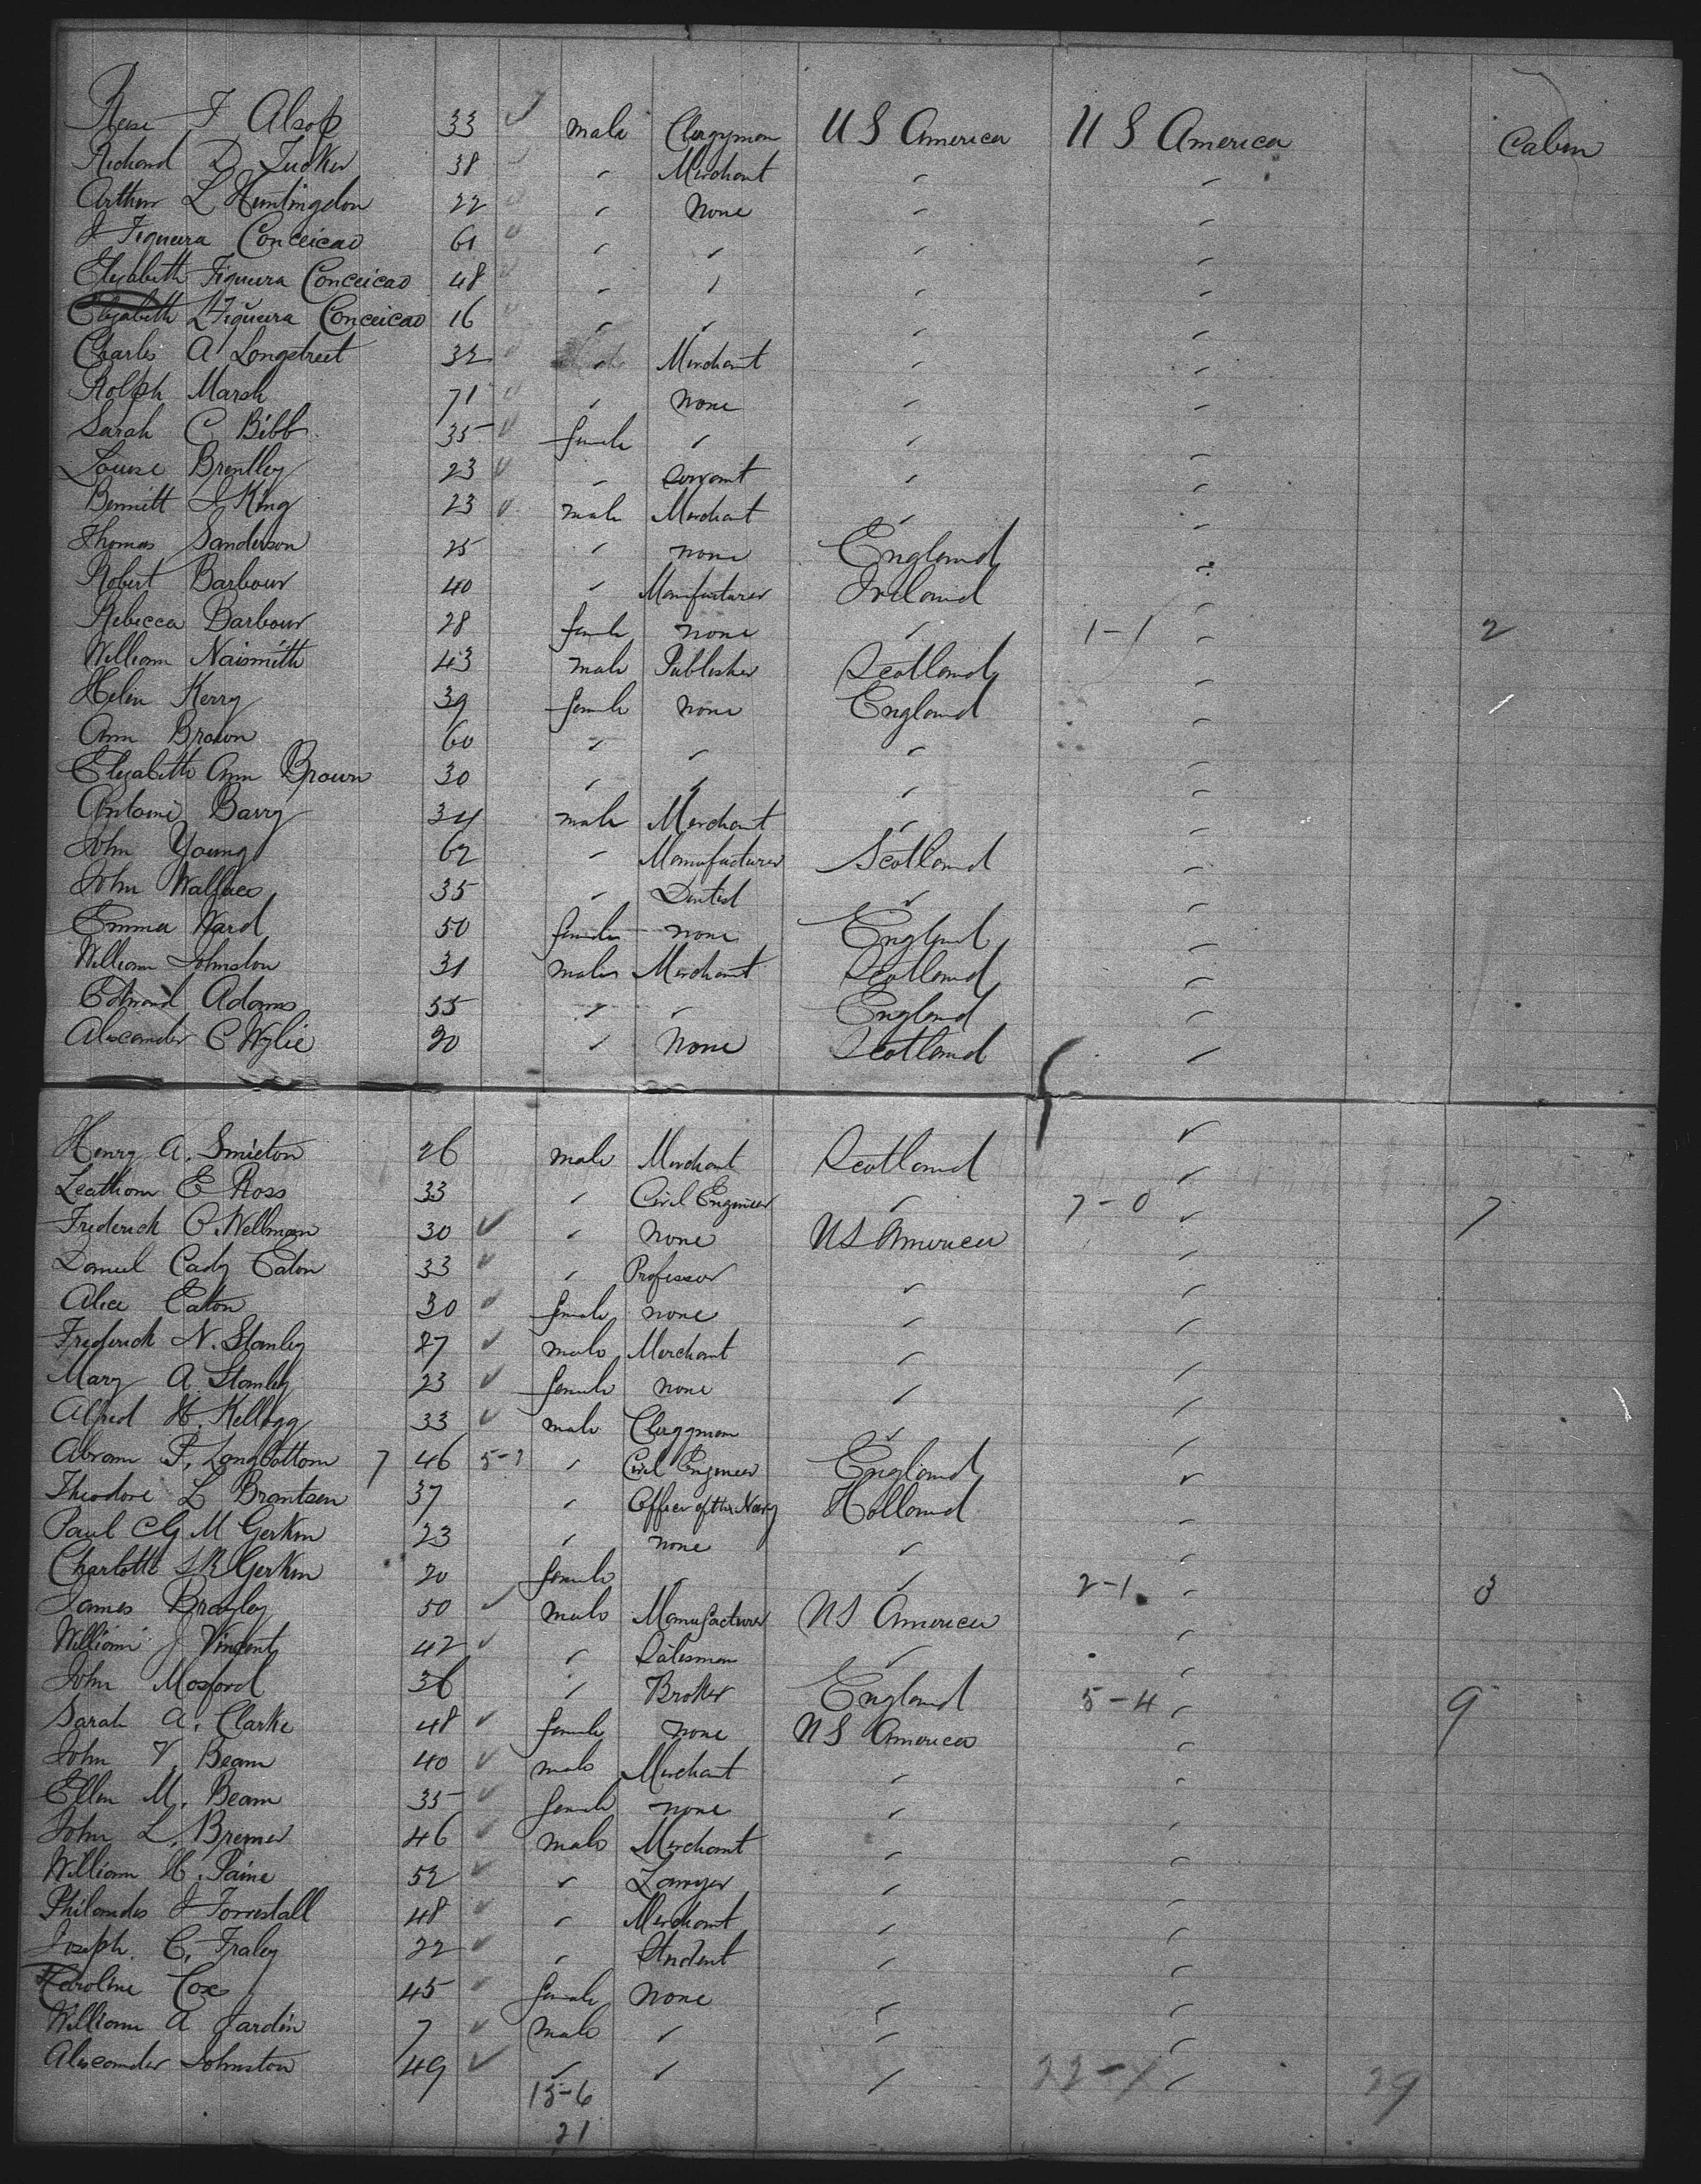 Reese F Alsop 33 ✓ male Clergyman U S America U S America Cabin
Richard D Tucker 38 ✓ " Merchant " "
Arthur L Huntingdon 22 ✓ " None " "
J Figueira Conceicao 61 ✓ " " " "
Elizabeth Figueira Conceicao 48 ✓ " " " "
Elizabeth L Figueira Conceicao 16 ✓ " " " "
Charles A Longstreet 32 ✓ " Merchant " "
Rolph Marsh 71 ✓ " None " "
Sarah C Bibb 35 ✓ female " " "
Louise Brentley 23 ✓ " Servant " "
Bennett J King 23 ✓ male Merchant " "
Thomas Sanderson 25 " none England "
Robert Barbour 40 " Manufacturer Ireland "
Rebecca Barbour 28 female none " 1-1 " 2
William Naismith 43 male Publisher Scotland "
Helen Kerry 39 female none England "
Ann Brown 60 " " " "
Elizabeth Ann Brown 30 " " " "
Antoine Barry 34 male Merchant " "
John Young 62 " Manufacturer Scotland "
John Wallace 35 " Dentist " "
Emma Ward 50 female none England "
William Johnston 31 male Merchant Scotland "
Edmund Adams 55 " " England "
Alexander C Wylie 20 " None Scotland "
Henry A. Smieton 26 male Merchant Scotland "
Leathom E Ross 33 " Civil Engineer " 7-0 " 7
Frederick O. Wellman 30 ✓ " none US America "
Daniel Cady Eaton 33 ✓ " Professor " "
Alice Eaton 30 ✓ female none " "
Frederick N. Stanley 27 ✓ male Merchant " "
Mary A. Stanley 23 ✓ female none " "
Alfred H. Kellogg 33 ✓ male Clergyman " "
Abram P. Longbottom 7 46 5-2 " Civil Engineer England "
Theodore L Brantsen 37 " Officer of the Navy Holland "
Paul C G M Gerkin 23 " none " "
Charlotte S R Gerkin 20 female " " 2-1 " 3
James Brayley 50 ✓ male Manufacturer US America "
William J Vincent 42 ✓ " Salesman " "
John Mosford 36 " Broker England 5-4 " 9
Sarah A. Clarke 48 ✓ female none US America "
John V. Beam 40 ✓ male Merchant " "
Ellen M. Beam 35 ✓ female none " "
John L. Bremer 46 ✓ male Merchant " "
William H. Paine 52 ✓ " Lawyer " "
Philandes J Forrestall 48 ✓ " Merchant " "
Joseph C. Fraley 22 ✓ " Student " "
Caroline Cox 45 ✓ female none " "
William A Jardin 7 ✓ male " " "
Alexander Johnston 49 ✓ " " " 22-7 " 29
15-6
21